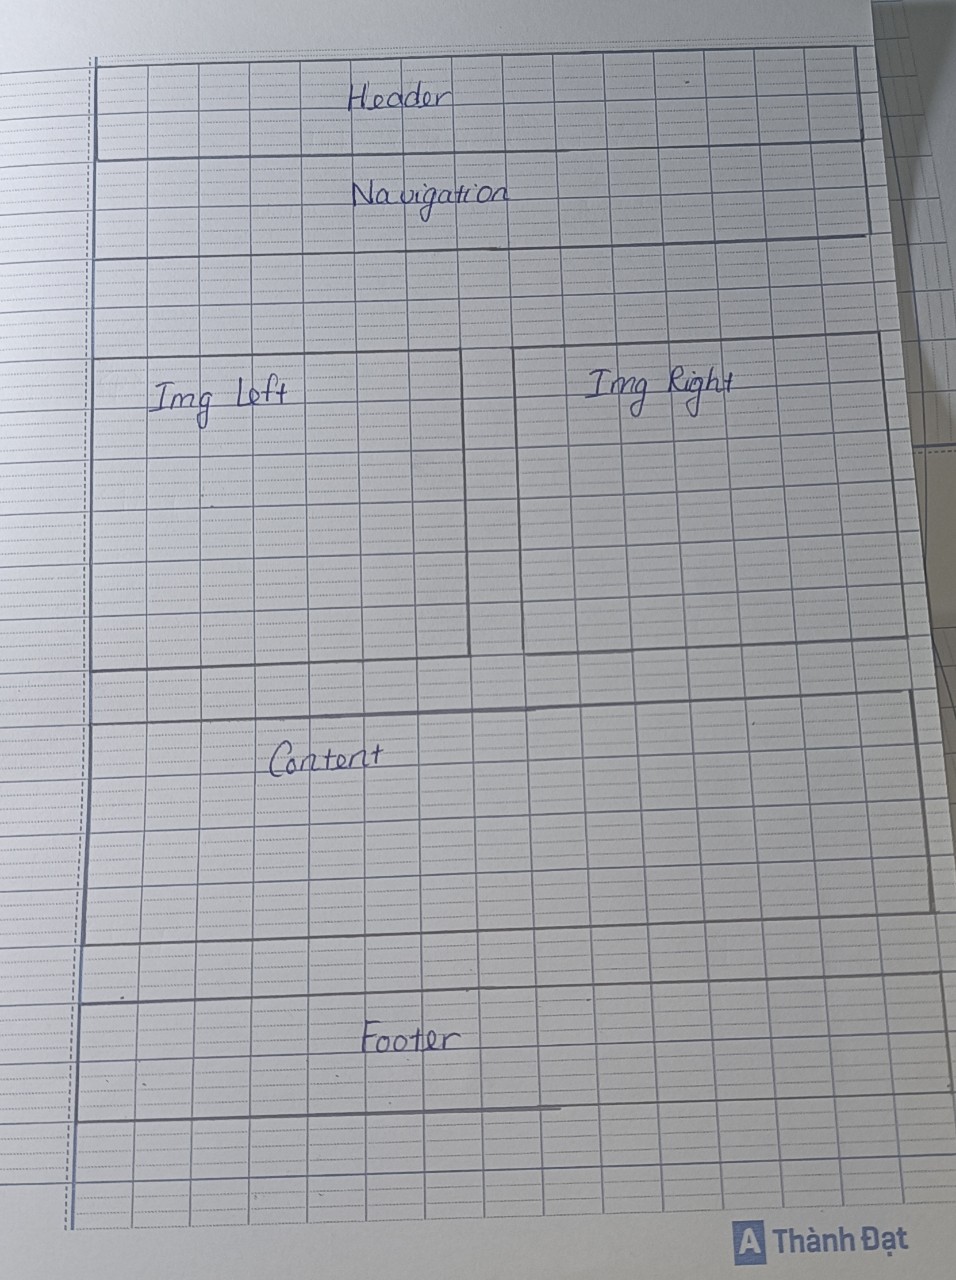 Header
Navigation
Img Left
Img Right
Content
Footer
A Thành Đạt